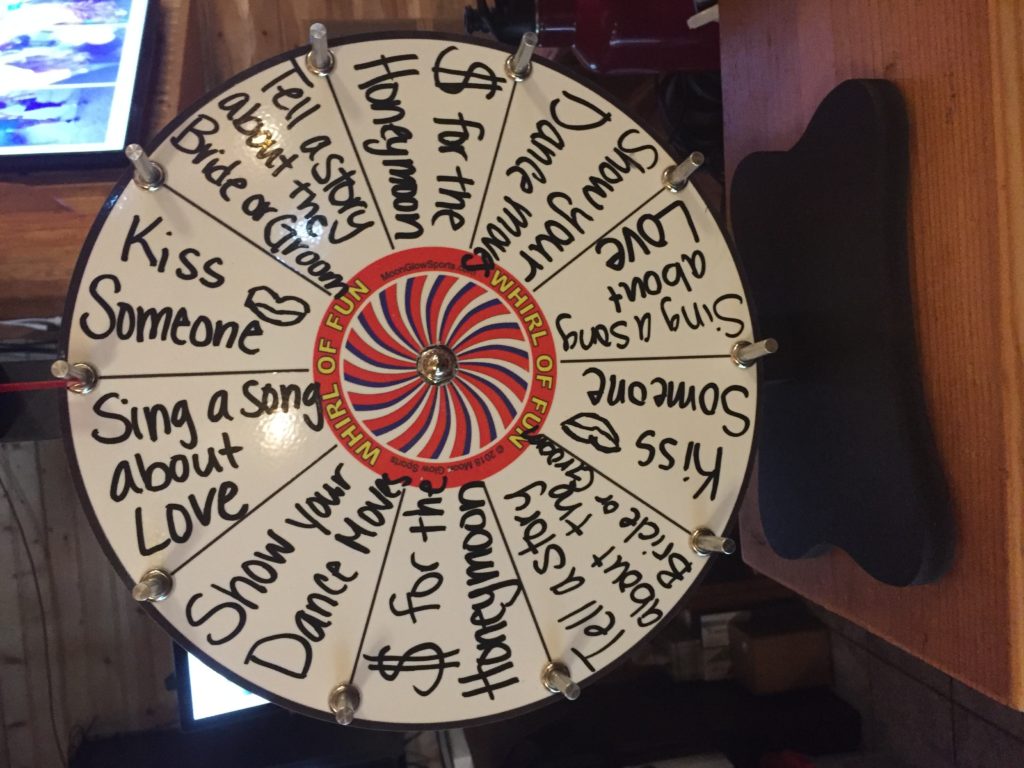 $ for the
Honeymoon
Show your
Dance moves
Sing a song
about
Love
Kiss
Someone
Tell a story
about the
Bride or Groom
$ for the
Honeymoon
Show your
Dance Moves
Sing a song
about
Love
Kiss
Someone
Tell a story
about the
Bride or Groom
WHIRL OF FUN
WHIRL OF FUN
MoonGlowSports.com
© 2018 Moon Glow Sports